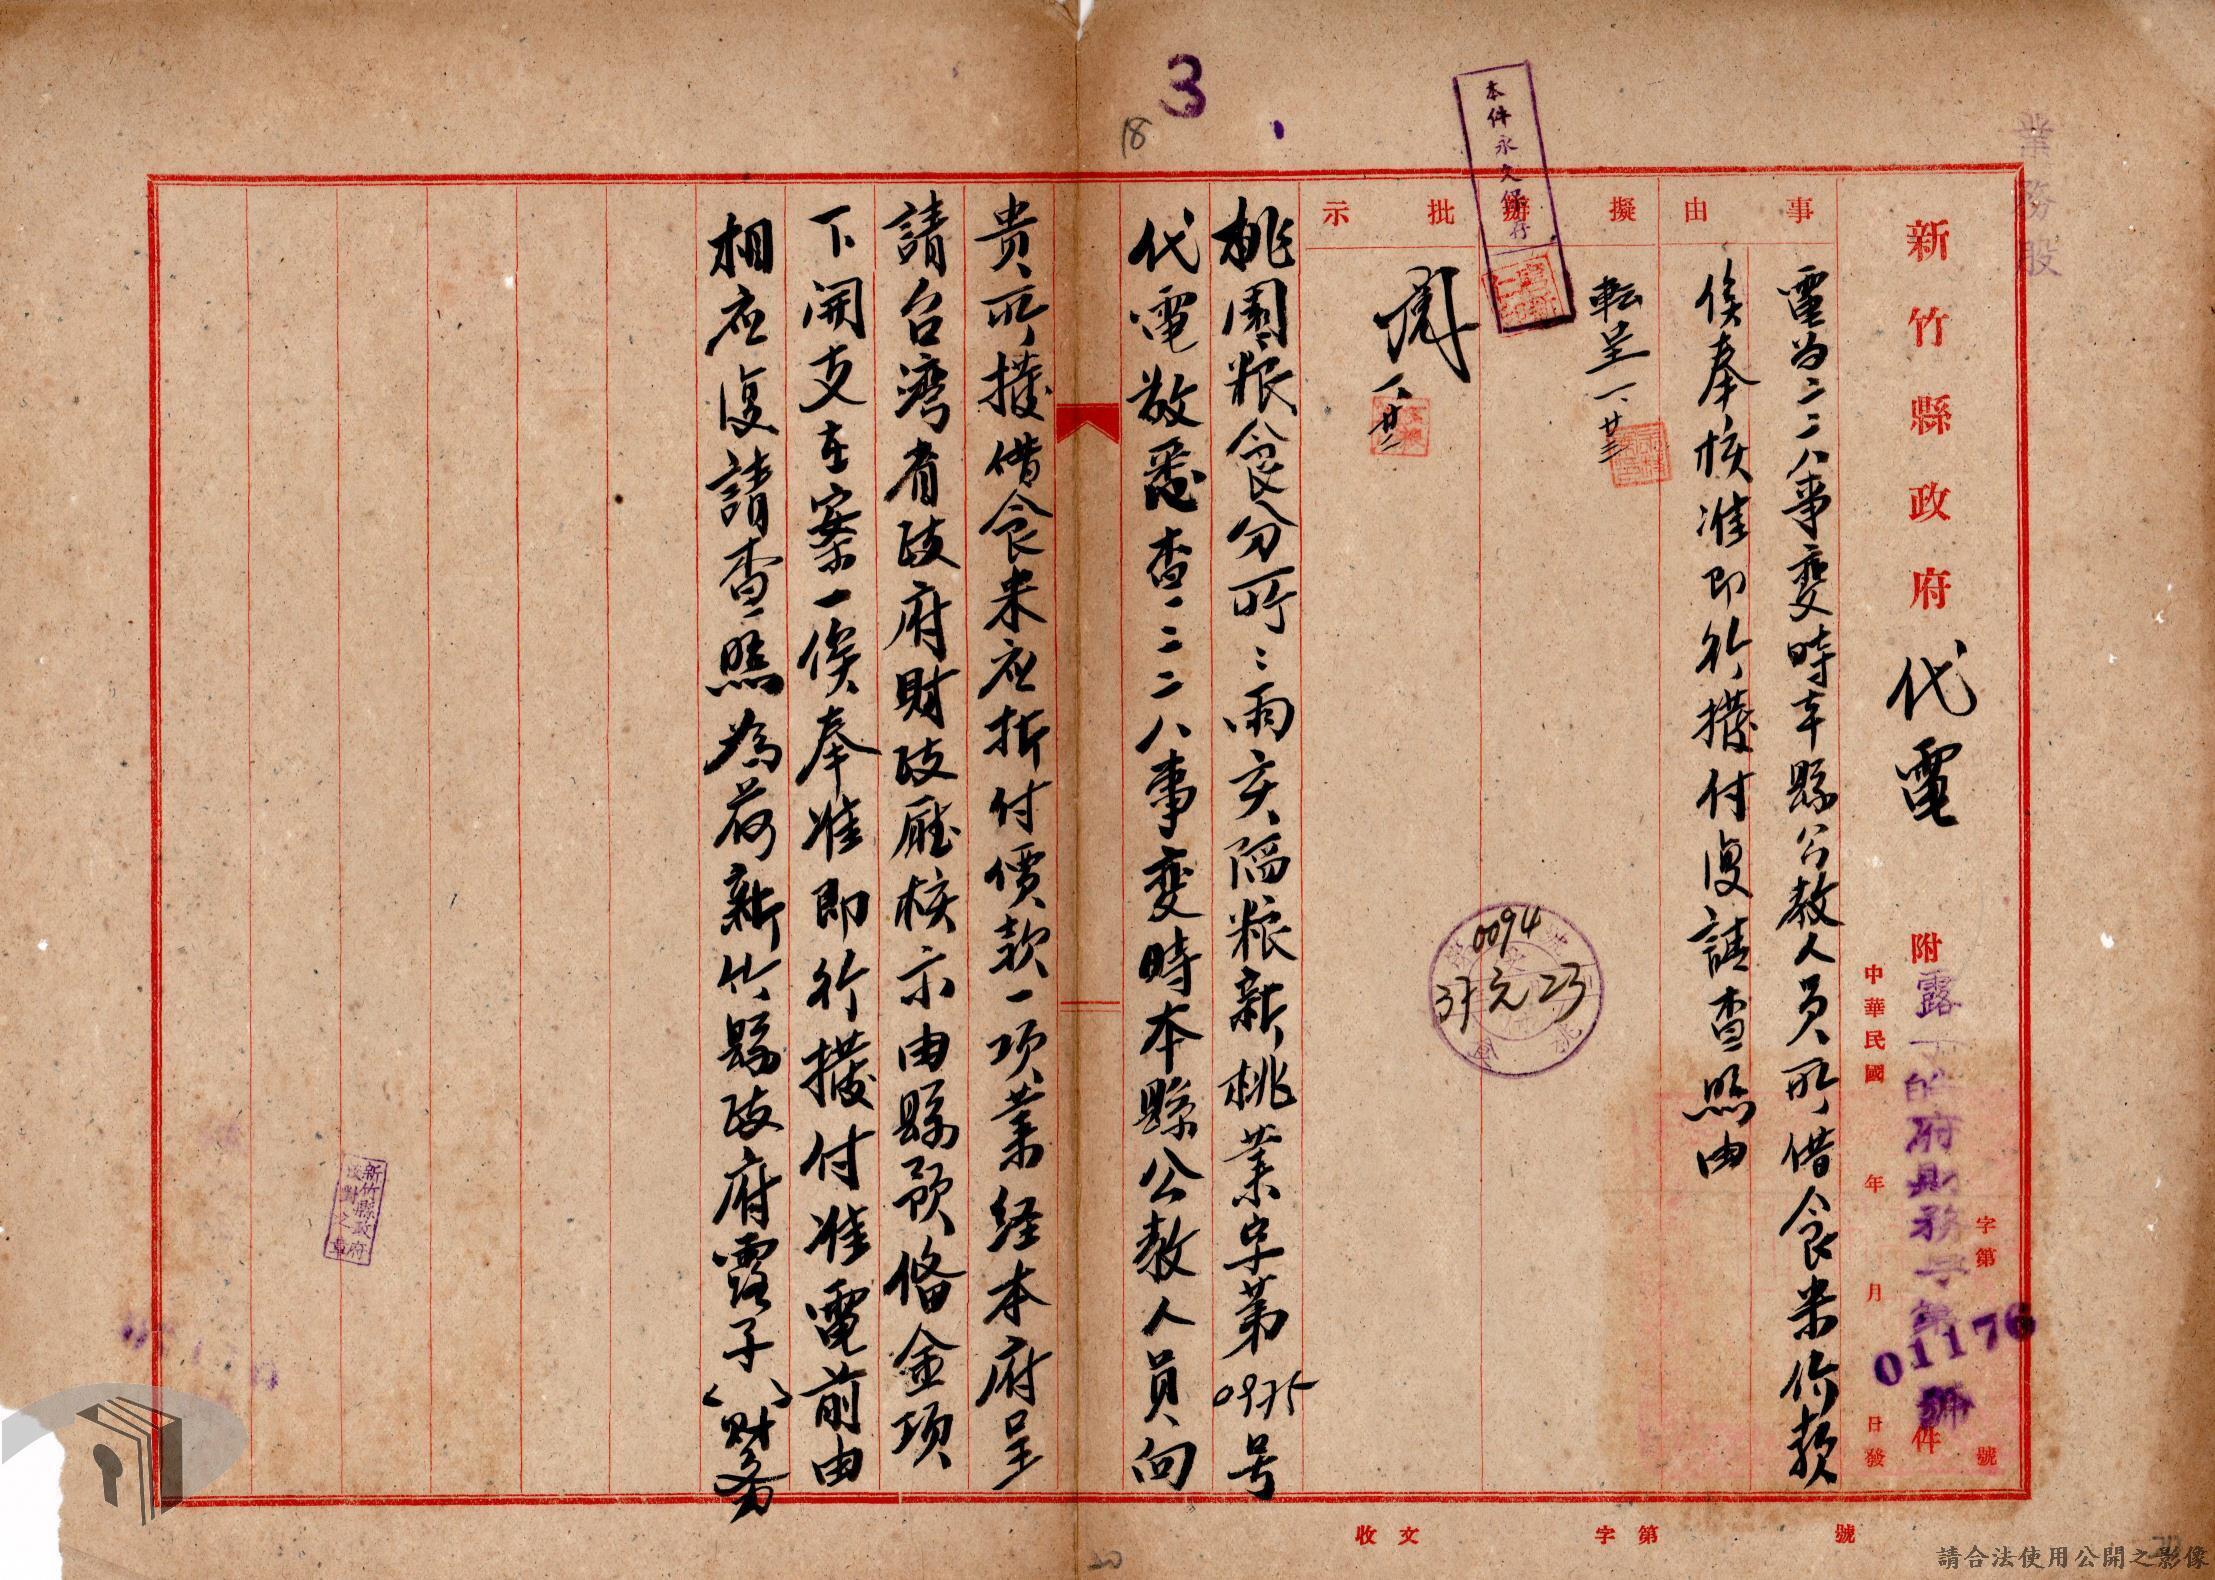 3
18
業務股
本件永久保存
新竹縣政府代電
附 件
字第 號
中華民國 年 月 日發
府財務字第01176號
事由
電為二二八事變時本縣公教人員所借食米價款
俟奉核准即行撥付復請查照由
擬辦
転呈 一、廿三
批示
一、廿三
0094
37元23
桃園粮食分所：雨亥隔粮新桃業字第0975号
代電敬悉查二二八事變時本縣公教人員向
貴所撥借食米应折付價款一項業経本府呈
請台湾省政府財政廳核示由縣預備金項
下開支在案一俟奉准即行撥付准電前由
相应復請查照為荷新竹縣政府露子(財務
新竹縣政府
校對之章
收文 字第 號
20
請合法使用公開之影像